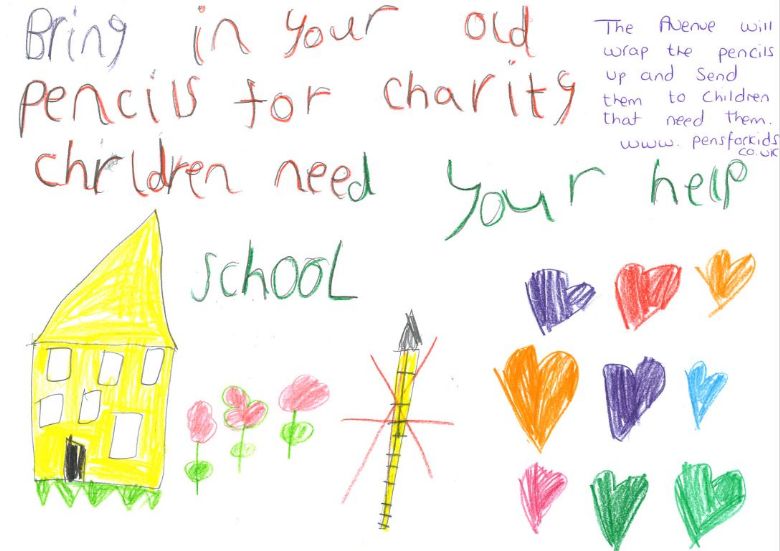 Bring in your old
pencils for charity
children need your help
school
The Avenue will
wrap the pencils
up and send
them to children
that need them.
www.pensforkids
co.uk